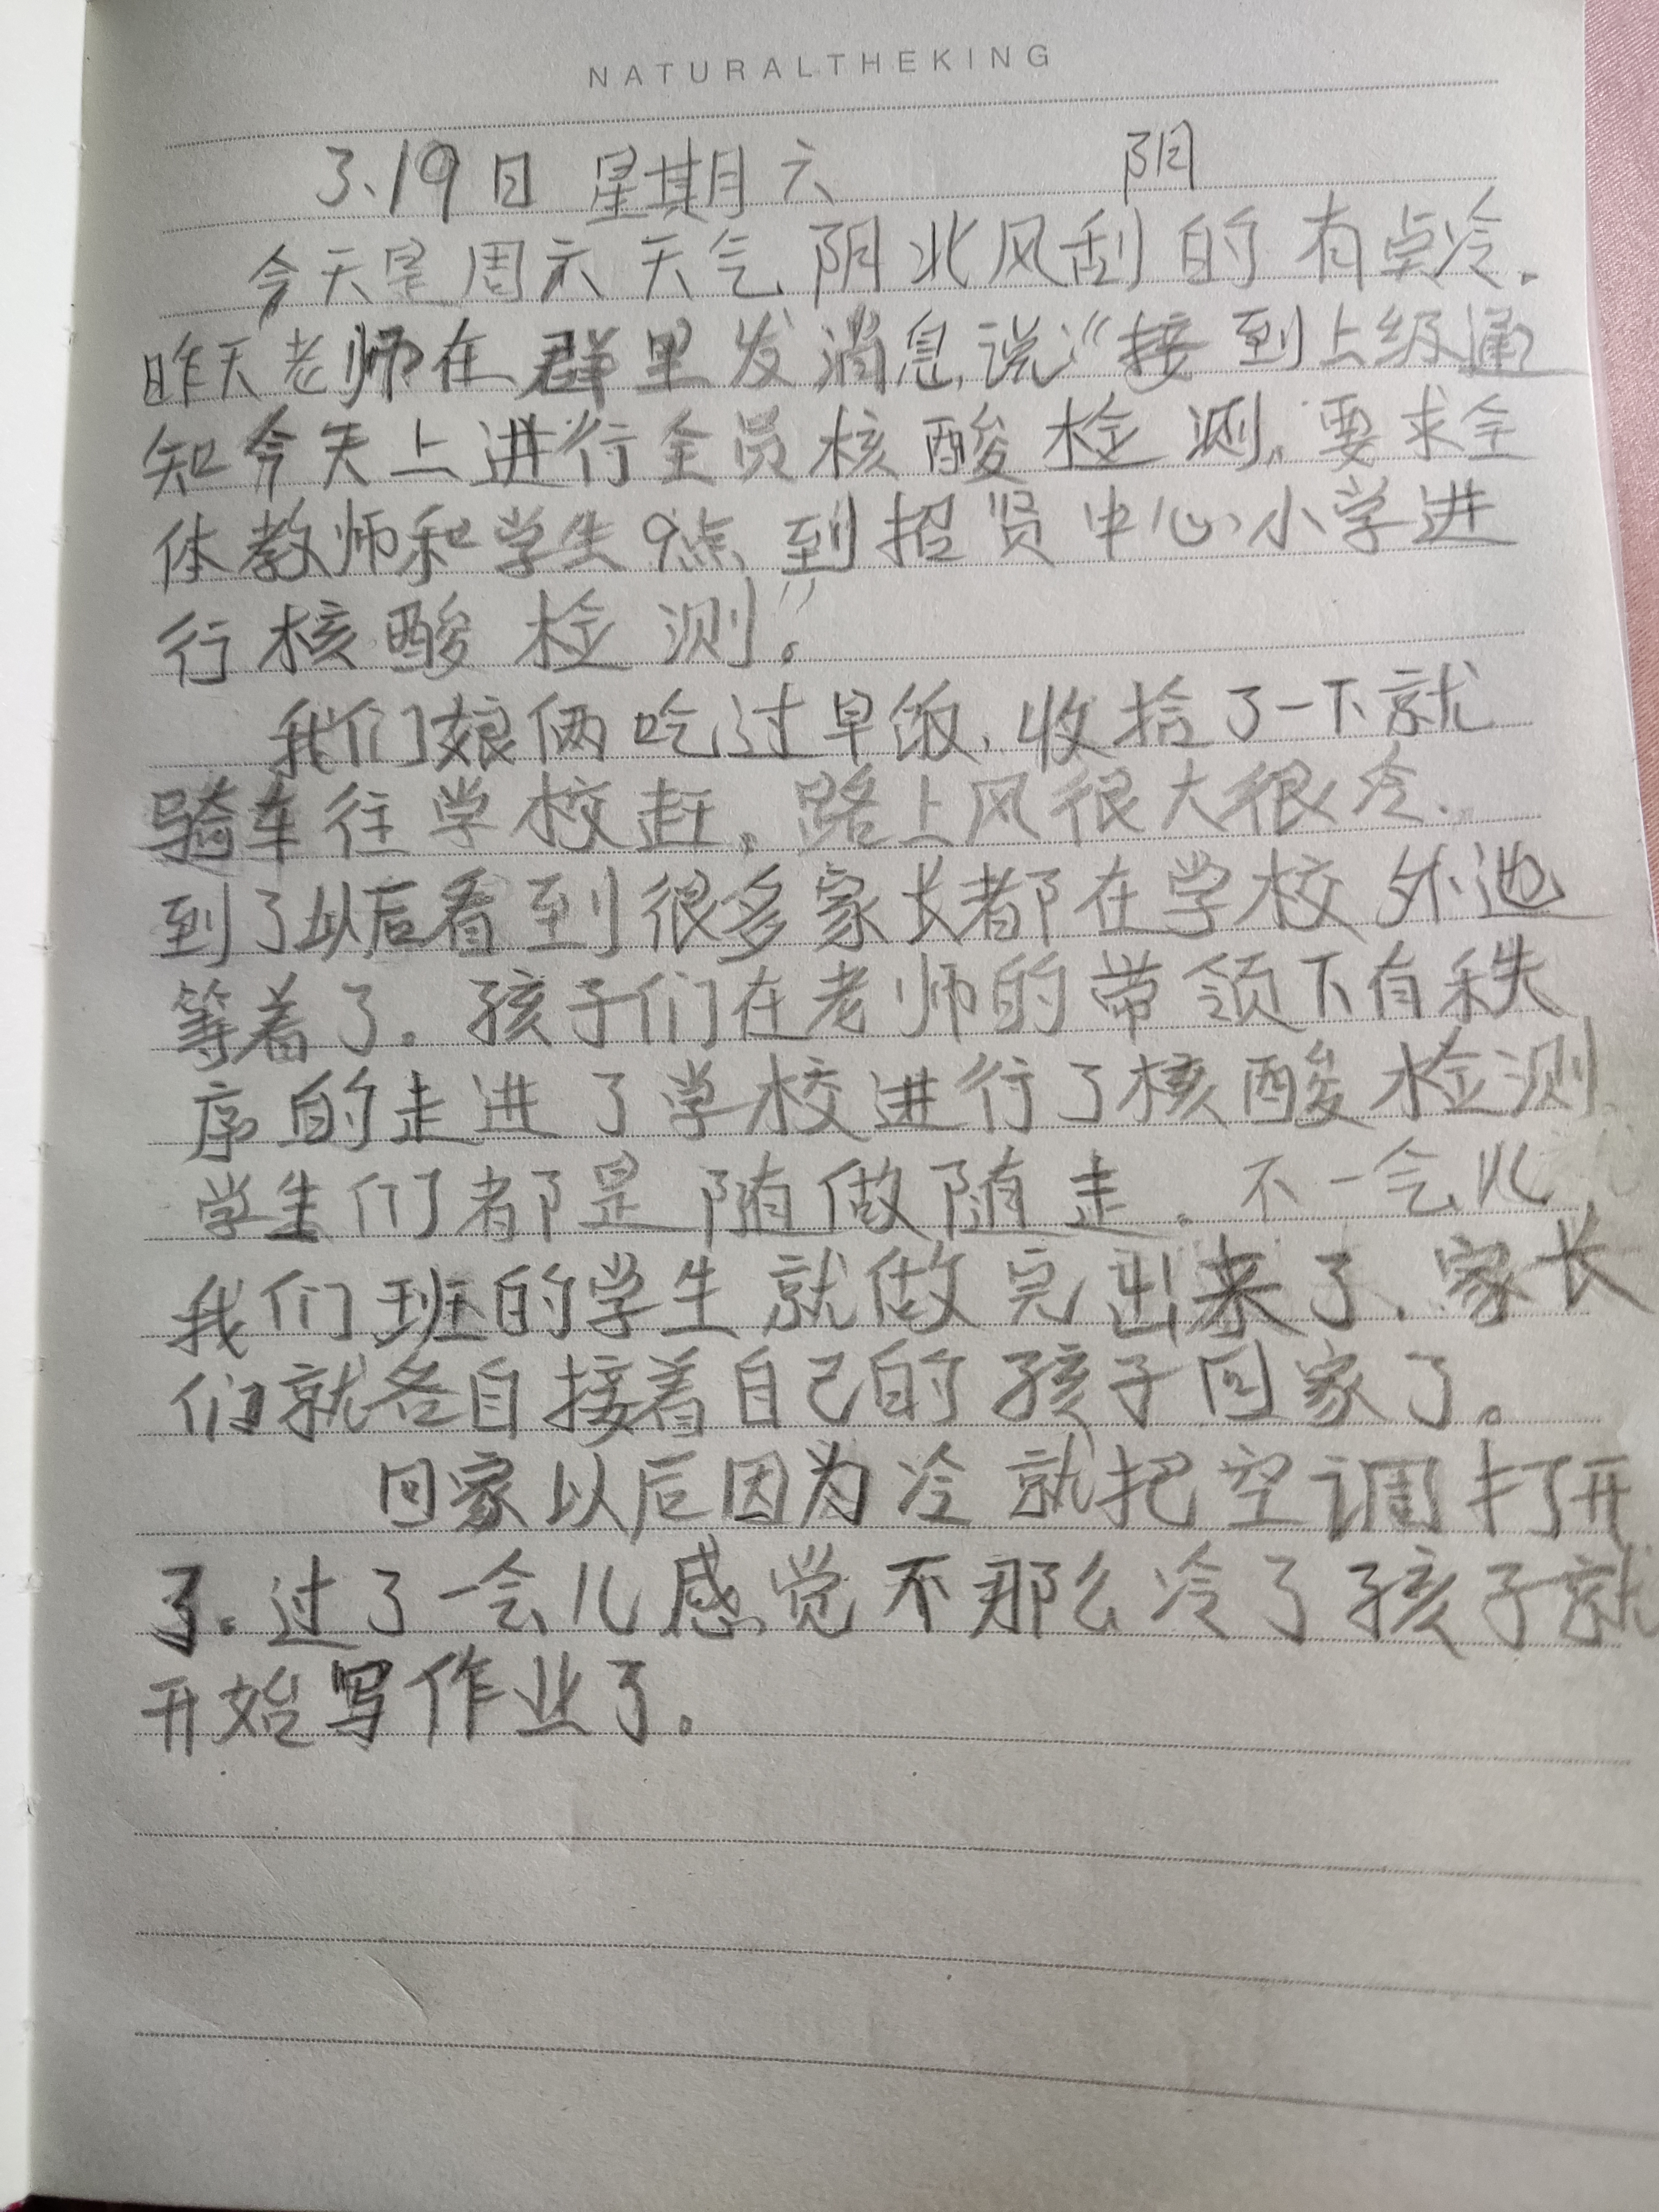 NATURALTHEKING
3.19日 星期六 阴
今天是周六天气阴北风刮的有点冷。
昨天老师在群里发消息,说:“接到上级通
知今天上进行全员核酸检测,要求全
体教师和学生9点到招贤中心小学进
行核酸检测”。
我们娘俩吃过早饭,收拾了一下就
骑车往学校赶。路上风很大很冷.
到了以后看到很多家长都在学校外边
等着了。孩子们在老师的带领下有秩
序的走进了学校进行了核酸检测.
学生们都是随做随走。不一会儿
我们班的学生就做完出来了,家长
们就各自接着自己的孩子回家了。
回家以后因为冷就把空调打开
了。过了一会儿感觉不那么冷了孩子就
开始写作业了。